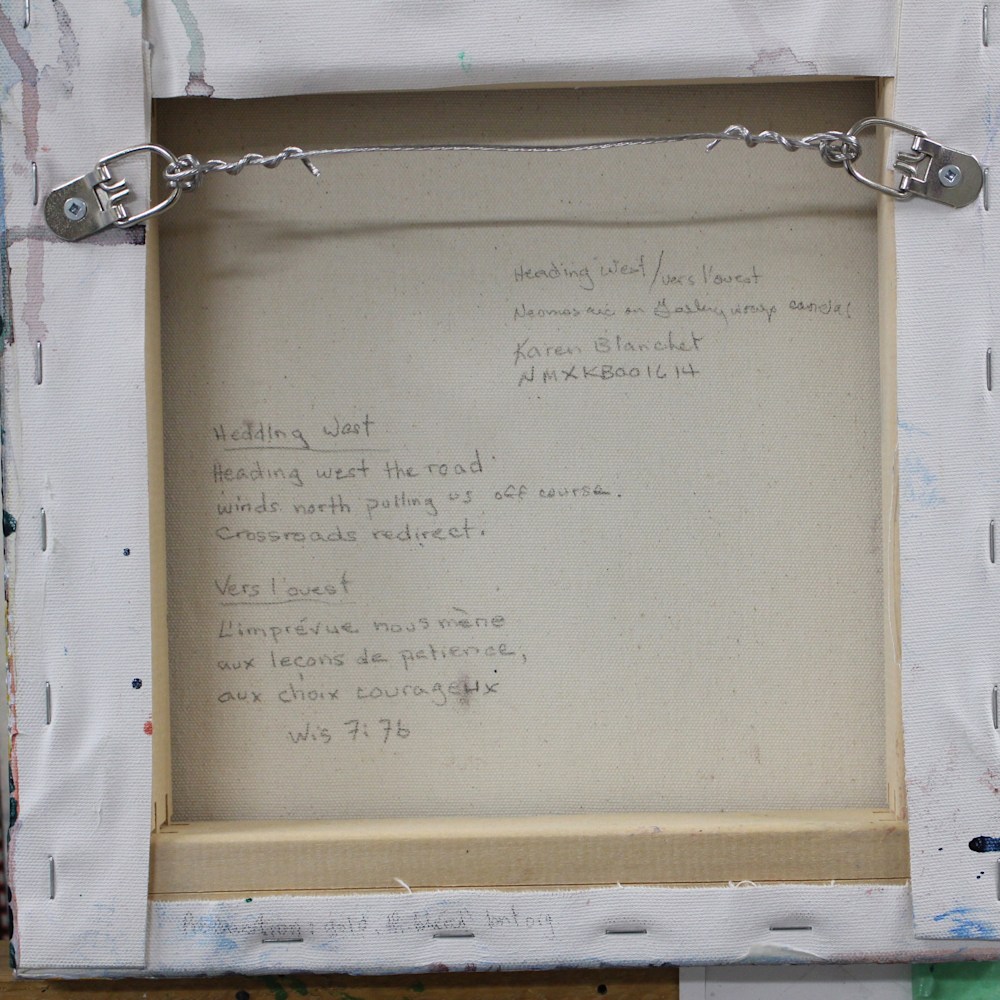 Heading West/vers l'ouest
Neomosaic on Gallery wrap canvas
Karen Blanchet
NMXKB001614
Hedding West
Heading west the road
winds north pulling us off course.
Crossroads redirect.
Vers l'ouest
L'imprévue nous mène
aux leçons de patience,
aux choix courageux
Wis 7:7b